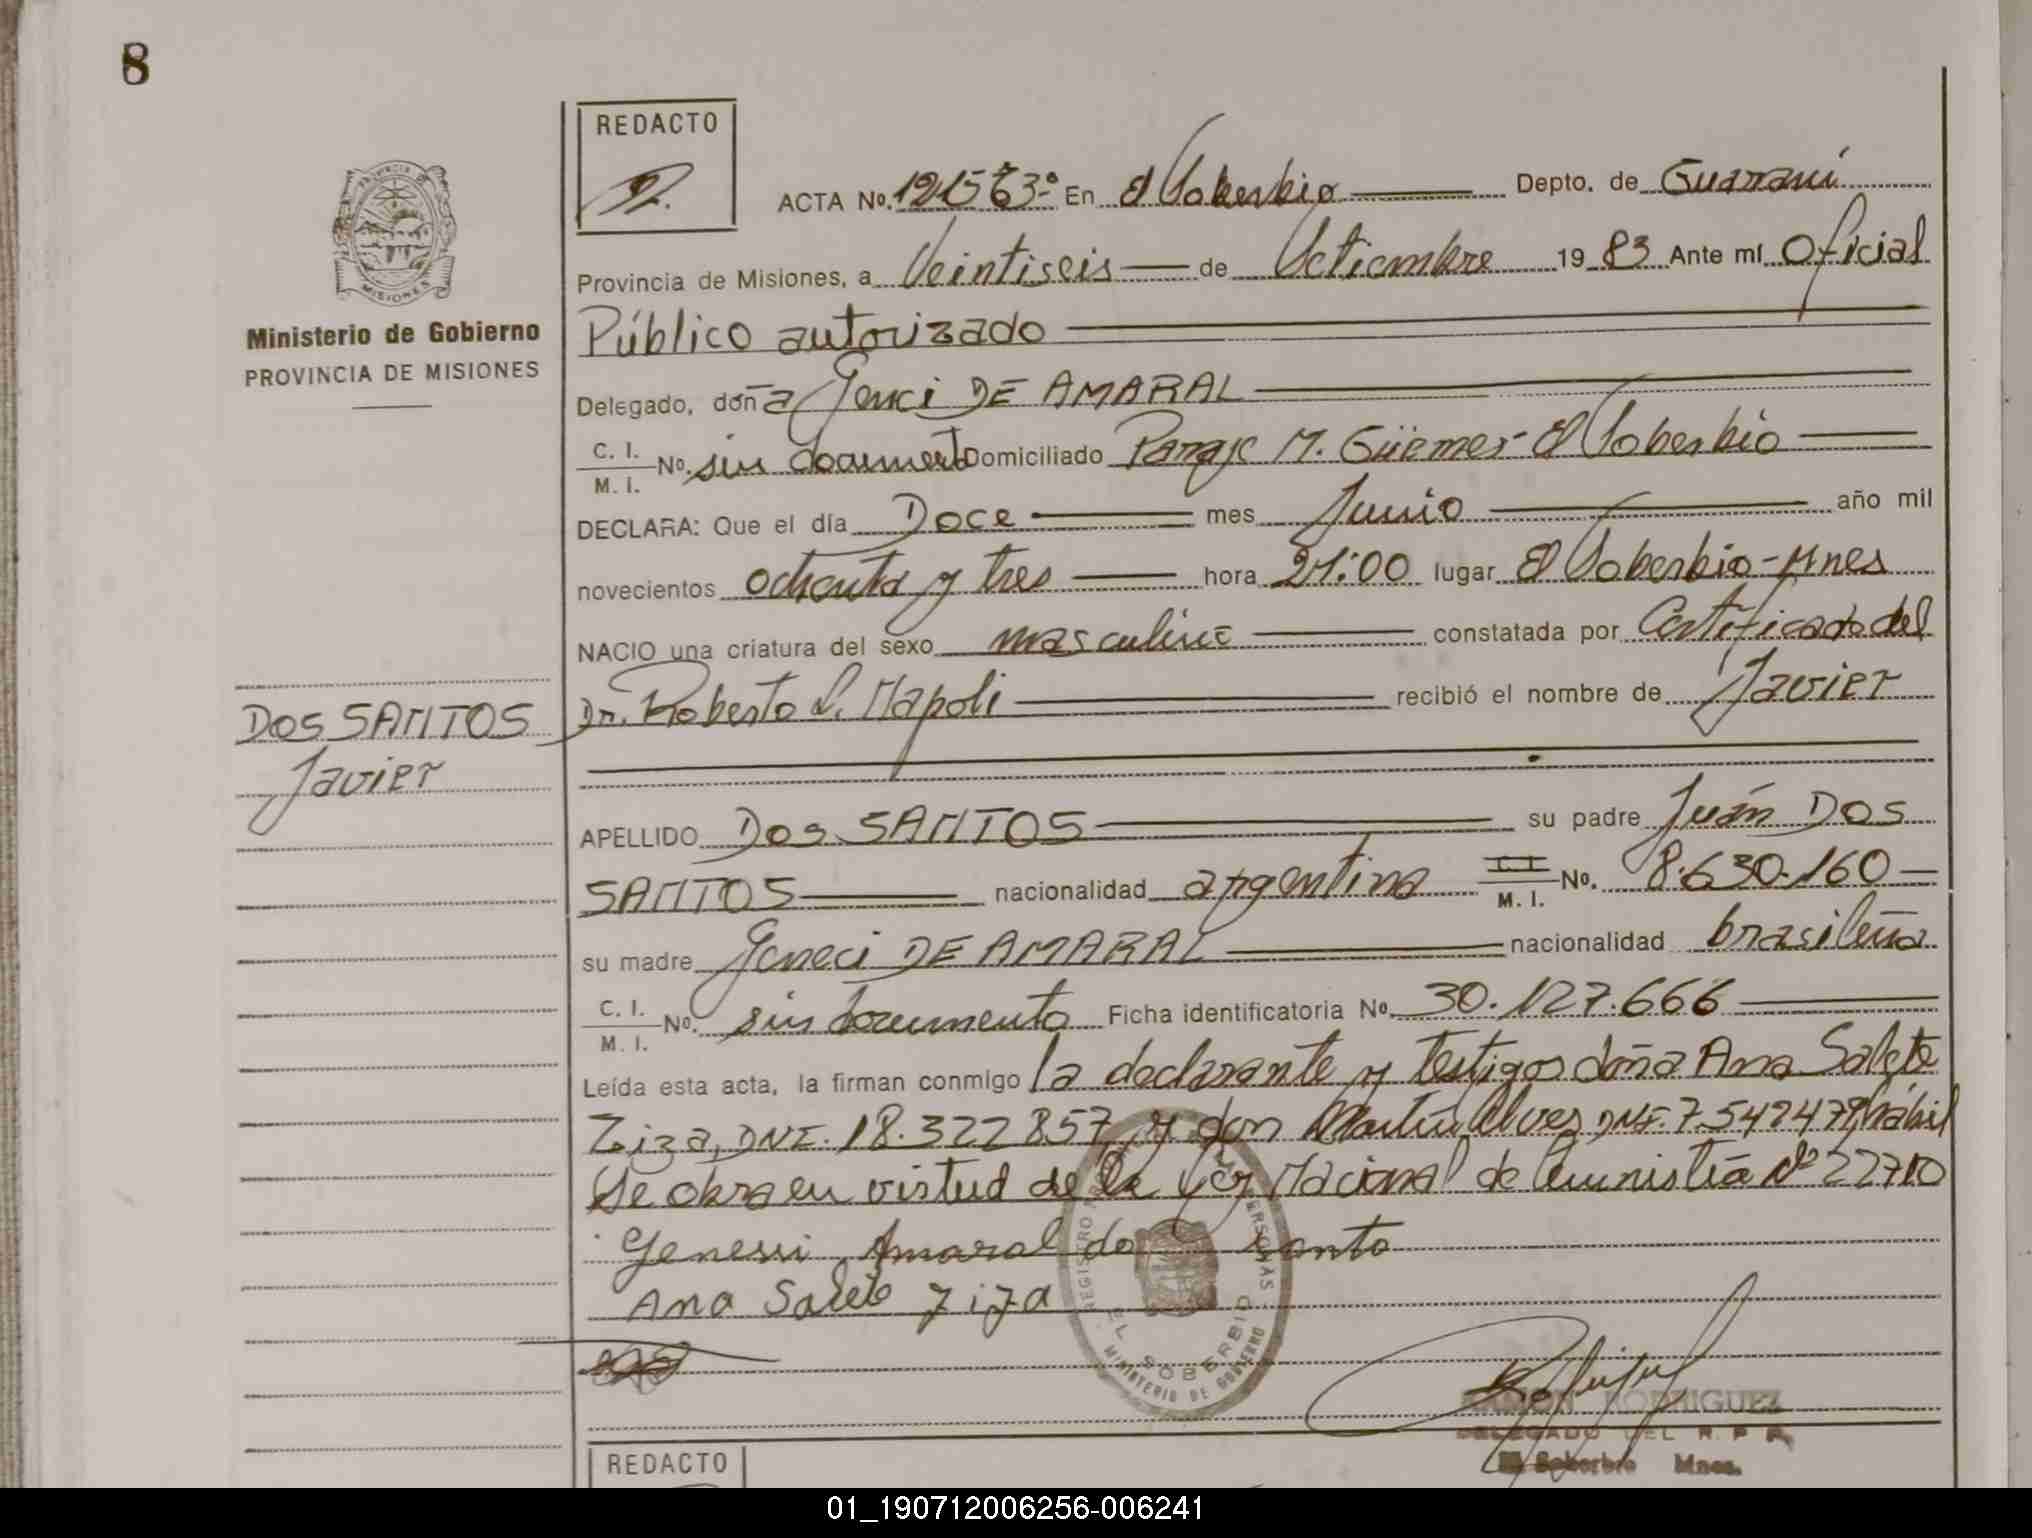 8
REDACTO
ACTA No. En El Soberbio Depto. de Guaraní
PROVINCIA DE
MISIONES
Provincia de Misiones, a Veintiseis de Setiembre 1983 Ante mí Oficial
Ministerio de Gobierno
PROVINCIA DE MISIONES
Público autorizado
Delegado, doña Genci DE AMARAL
C. I.
M. I. No. sin documento Domiciliado Paraje M. Güemes - El Soberbio
DECLARA: Que el día Doce mes Junio año mil
novecientos ochenta y tres hora 21:00 lugar El Soberbio - Mnes
NACIO una criatura del sexo masculino constatada por Certificado del
Dr. Roberto L. Napoli recibió el nombre de Javier
DOS SANTOS
Javier
APELLIDO Dos SANTOS su padre Juán DOS
SANTOS nacionalidad argentina C. I.
M. I. No. 8.630.160
su madre Geneci DE AMARAL nacionalidad brasileña
C. I.
M. I. No. sin documento Ficha identificatoria No. 30.127.666
Leída esta acta, la firman conmigo la declarante y testigos doña Ana Salete
Ziza, DNI. 18.322857, y don Martín Alves DNI. 7.542479, hábil
Se obra en virtud de la Ley Nacional de Amnistía Nº 22710
Genessi Amaral do santo
Ana Salete Ziza
REGISTRO PERSONAS
EL SOBERBIO
MINISTERIO DE GOBIERNO
RAMON RODRIGUEZ
DELEGADO DEL R. P. P.
El Soberbio Mnes.
REDACTO
01_190712006256-006241